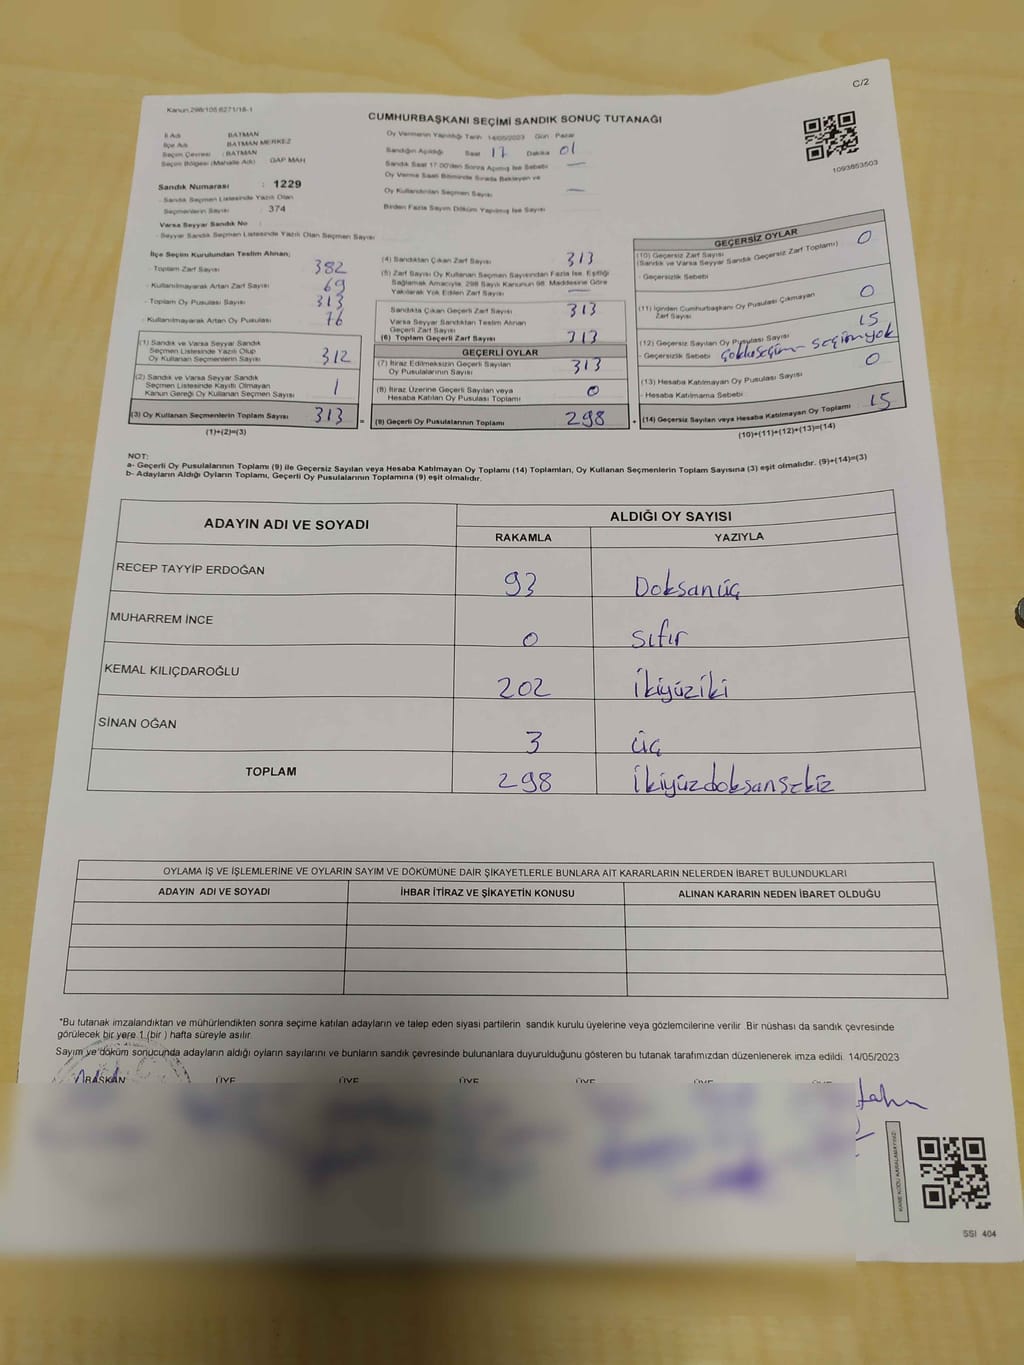 C/2
Kanun 298/105 6271/18-1
CUMHURBAŞKANI SEÇİMİ SANDIK SONUÇ TUTANAĞI
İl Adı BATMAN
İlçe Adı BATMAN MERKEZ
Seçim Çevresi : BATMAN
Seçim Bölgesi (Mahalle Adı) GAP MAH
Sandık Numarası : 1229
- Sandık Seçmen Listesinde Yazılı Olan
Seçmenlerin Sayısı : 374
Varsa Seyyar Sandık No :
- Seyyar Sandık Seçmen Listesinde Yazılı Olan Seçmen Sayısı
Oy Vermenin Yapıldığı Tarih 14/05/2023 Gün Pazar
Sandığın Açıldığı Saat 17 Dakika 01
Sandık Saat 17.00'den Sonra Açılmış İse Sebebi —
Oy Verme Saati Bitiminde Sırada Bekleyen ve
Oy Kullandırılan Seçmen Sayısı —
Birden Fazla Sayım Döküm Yapılmış İse Sayısı
1093853503
İlçe Seçim Kurulundan Teslim Alınan;
- Toplam Zarf Sayısı 382
- Kullanılmayarak Artan Zarf Sayısı 69
- Toplam Oy Pusulası Sayısı 313
- Kullanılmayarak Artan Oy Pusulası 76
(1) Sandık ve Varsa Seyyar Sandık
Seçmen Listesinde Yazılı Olup
Oy Kullanan Seçmenlerin Sayısı 312
(2) Sandık ve Varsa Seyyar Sandık
Seçmen Listesinde Kayıtlı Olmayan
Kanun Gereği Oy Kullanan Seçmen Sayısı 1
(3) Oy Kullanan Seçmenlerin Toplam Sayısı 313
(1)+(2)=(3)
=
(4) Sandıktan Çıkan Zarf Sayısı 313
(5) Zarf Sayısı Oy Kullanan Seçmen Sayısından Fazla İse, Eşitliği
Sağlamak Amacıyla, 298 Sayılı Kanunun 98. Maddesine Göre
Yakılarak Yok Edilen Zarf Sayısı —
Sandıkta Çıkan Geçerli Zarf Sayısı 313
Varsa Seyyar Sandıktan Teslim Alınan
Geçerli Zarf Sayısı
(6) Toplam Geçerli Zarf Sayısı 313
GEÇERLİ OYLAR
(7) İtiraz Edilmeksizin Geçerli Sayılan
Oy Pusulalarının Sayısı 313
(8) İtiraz Üzerine Geçerli Sayılan veya
Hesaba Katılan Oy Pusulası Toplamı 0
(9) Geçerli Oy Pusulalarının Toplamı 298
+
GEÇERSİZ OYLAR
(10) Geçersiz Zarf Sayısı 0
(Sandık ve Varsa Seyyar Sandık Geçersiz Zarf Toplamı)
- Geçersizlik Sebebi
(11) İçinden Cumhurbaşkanı Oy Pusulası Çıkmayan
Zarf Sayısı 0
(12) Geçersiz Sayılan Oy Pusulası Sayısı 15
- Geçersizlik Sebebi seçim yok
(13) Hesaba Katılmayan Oy Pusulası Sayısı 0
- Hesaba Katılmama Sebebi
(14) Geçersiz Sayılan veya Hesaba Katılmayan Oy Toplamı 15
(10)+(11)+(12)+(13)=(14)
NOT:
a- Geçerli Oy Pusulalarının Toplamı (9) ile Geçersiz Sayılan veya Hesaba Katılmayan Oy Toplamı (14) Toplamları, Oy Kullanan Seçmenlerin Toplam Sayısına (3) eşit olmalıdır. (9)+(14)=(3)
b- Adayların Aldığı Oyların Toplamı, Geçerli Oy Pusulalarının Toplamına (9) eşit olmalıdır.
ADAYIN ADI VE SOYADI
ALDIĞI OY SAYISI
RAKAMLA YAZIYLA
RECEP TAYYİP ERDOĞAN 93 Doksanüç
MUHARREM İNCE 0 sıfır
KEMAL KILIÇDAROĞLU 202 İkiyüziki
SİNAN OĞAN 3 üç
TOPLAM 298 İkiyüzdoksansekiz
OYLAMA İŞ VE İŞLEMLERİNE VE OYLARIN SAYIM VE DÖKÜMÜNE DAİR ŞİKAYETLERLE BUNLARA AİT KARARLARIN NELERDEN İBARET BULUNDUKLARI
ADAYIN ADI VE SOYADI İHBAR İTİRAZ VE ŞİKAYETİN KONUSU ALINAN KARARIN NEDEN İBARET OLDUĞU
*Bu tutanak imzalandıktan ve mühürlendikten sonra seçime katılan adayların ve talep eden siyasi partilerin sandık kurulu üyelerine veya gözlemcilerine verilir. Bir nüshası da sandık çevresinde
görülecek bir yere 1 (bir) hafta süreyle asılır.
Sayım ve döküm sonucunda adayların aldığı oyların sayılarını ve bunların sandık çevresinde bulunanlara duyurulduğunu gösteren bu tutanak tarafımızdan düzenlenerek imza edildi. 14/05/2023
BAŞKAN ÜYE ÜYE ÜYE ÜYE ÜYE ÜYE
KARE KODU KARALAMAYINIZ!
SSI 404